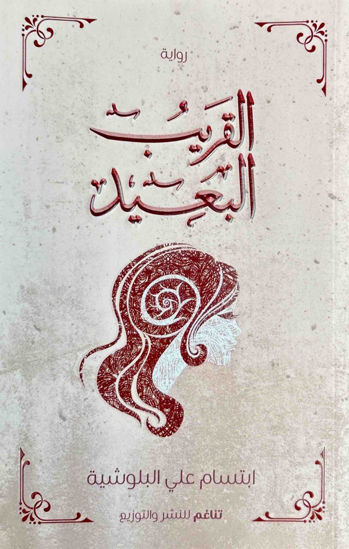 رواية
القريب
البعيد
ابتسام علي البلوشية
تناغم للنشر والتوزيع